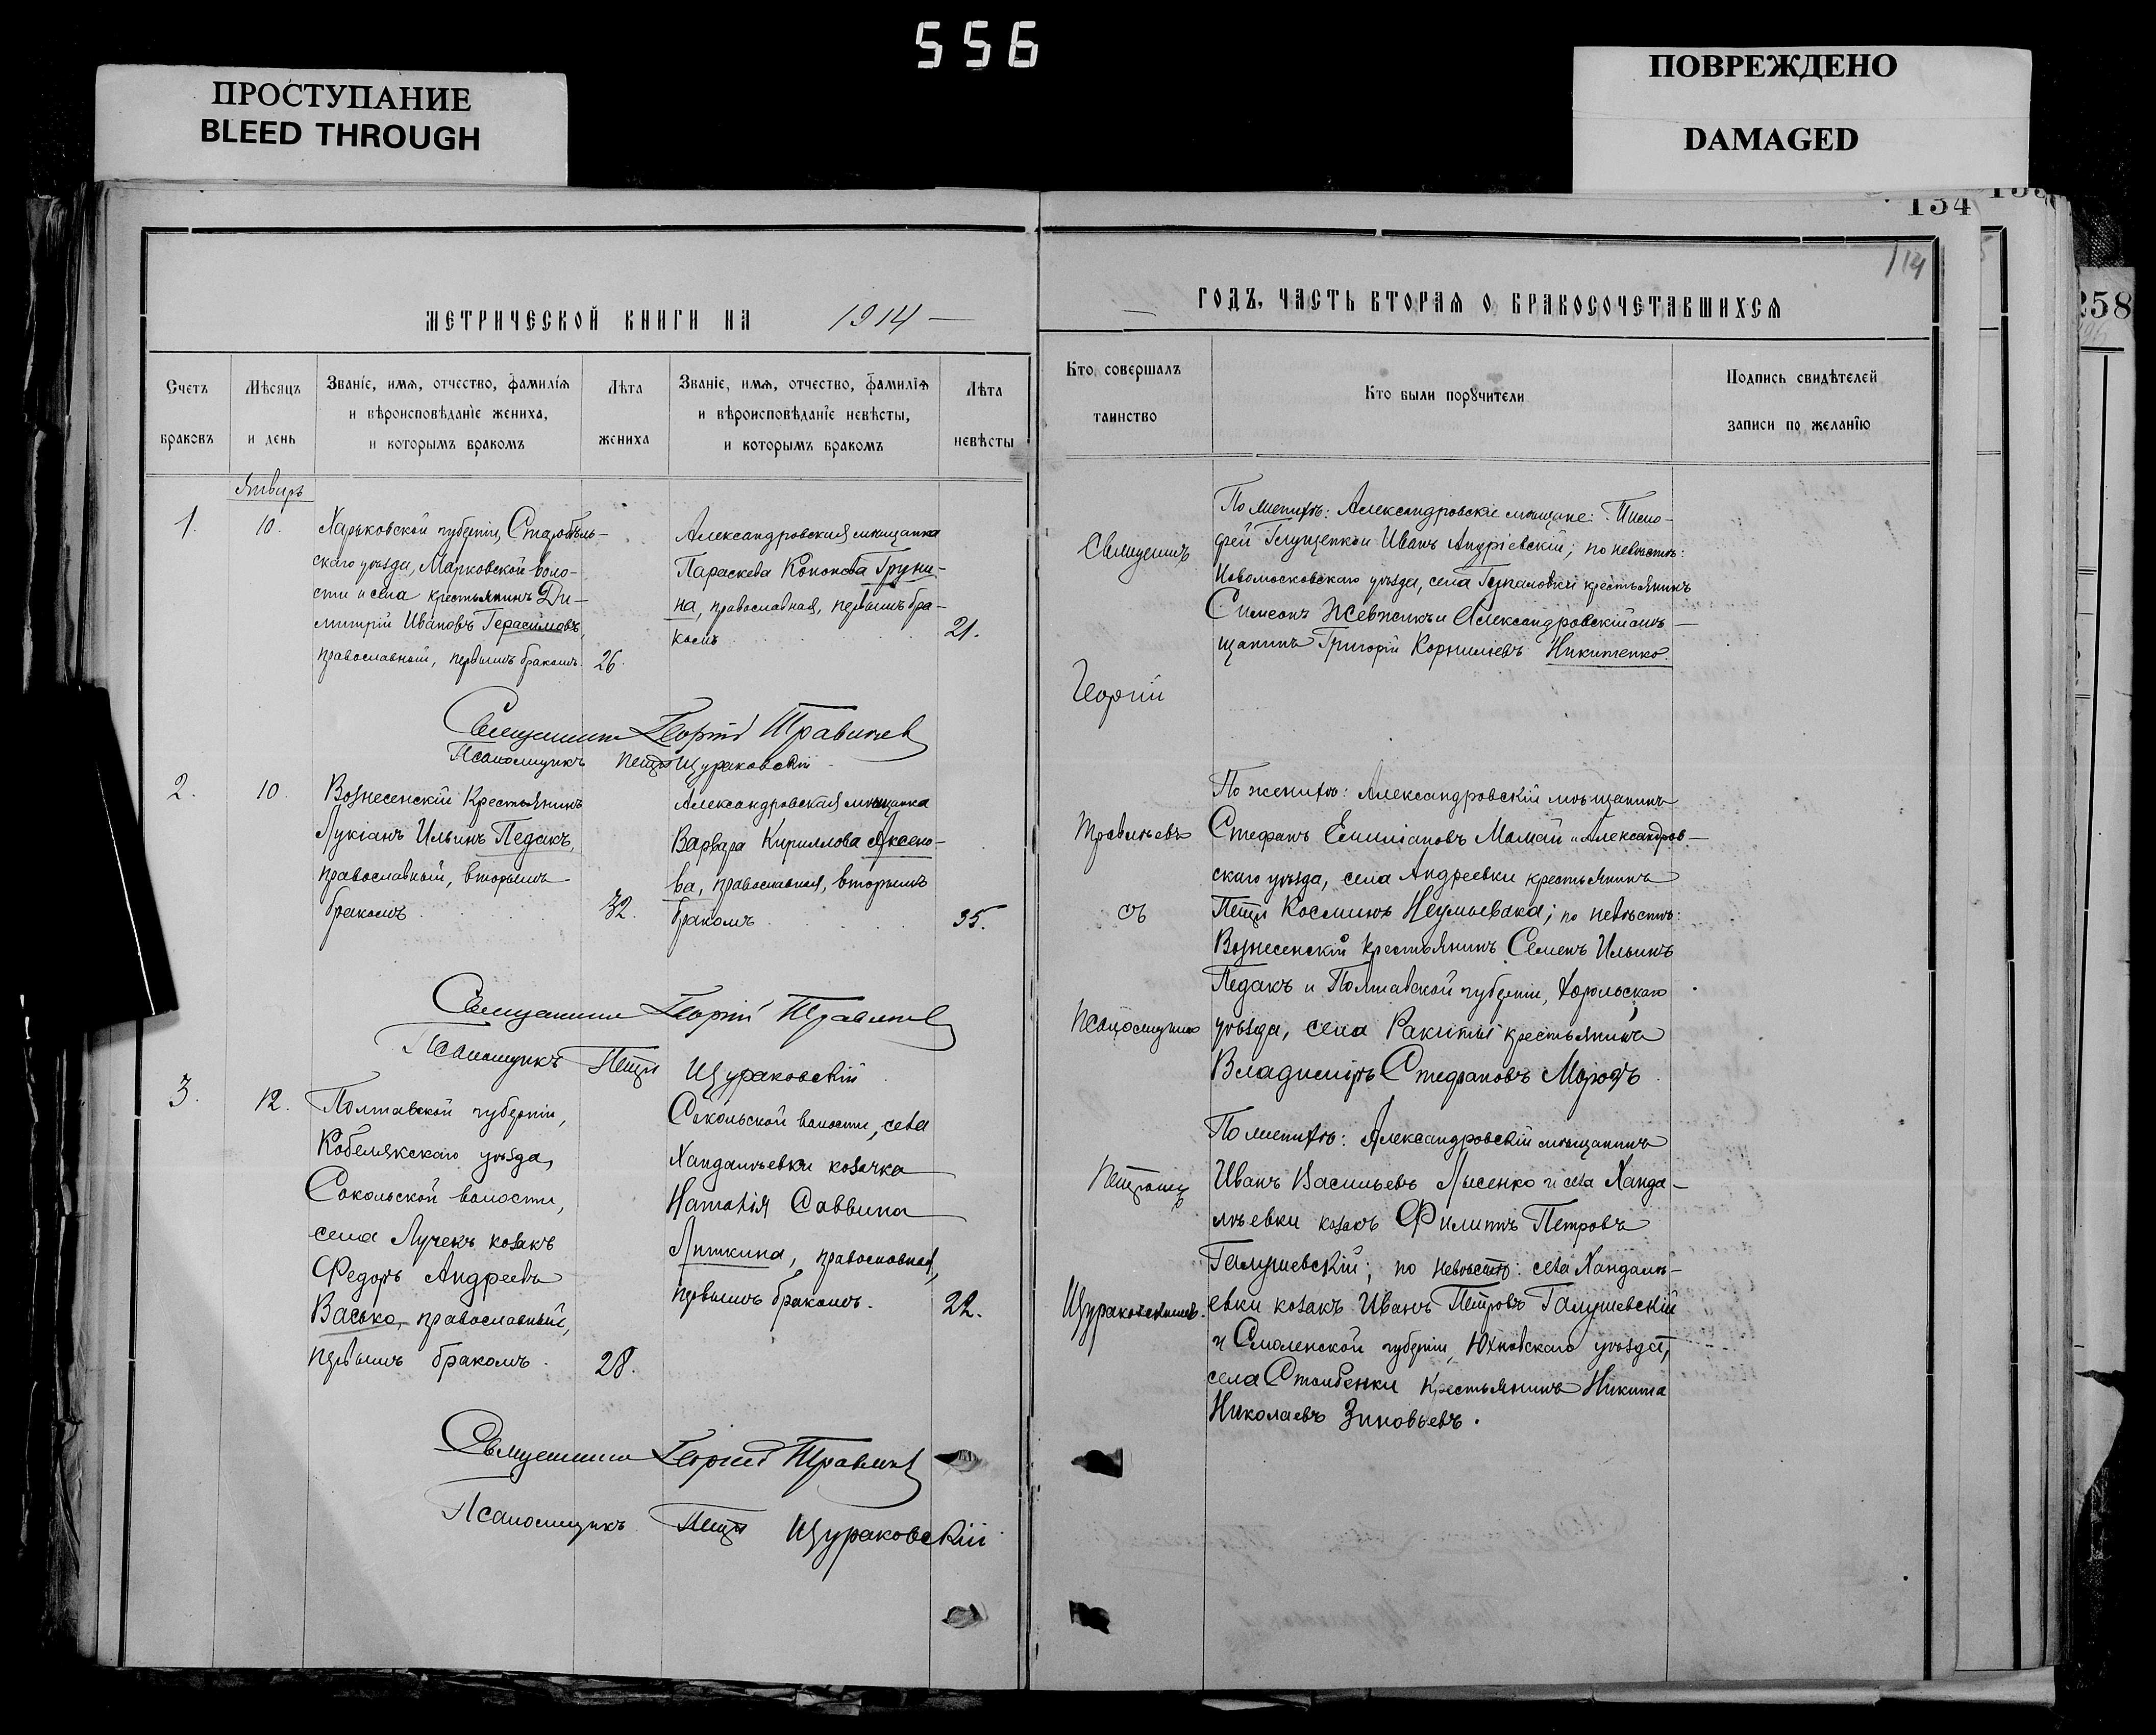 556
ПРОСТУПАНИЕ
BLEED THROUGH
ПОВРЕЖДЕНО
DAMAGED
134
114
258
МЕТРИЧЕСКОЙ КНИГИ НА 1914 —
Счетъ браковъ
Мѣсяцъ и день
Званіе, имя, отчество, фамилія
и вѣроисповѣданіе жениха,
и которымъ бракомъ
Лѣта жениха
Званіе, имя, отчество, фамилія
и вѣроисповѣданіе невѣсты,
и которымъ бракомъ
Лѣта невѣсты
Январь
1. 10.
Харьковской губерніи, Старобѣль-
скаго уѣзда, Марковской воло-
сти и села крестьянинъ Ди-
митрій Ивановъ Герасимовъ,
православный, первымъ бракомъ. 26.
Александровская мѣщанка
Параскева Кононова Груни-
на, православная, первымъ бра-
комъ 21.
Священникъ Георгій Травинев
Псаломщикъ Петръ Щураковскій
2. 10.
Вознесенскій крестьянинъ
Лукіанъ Ильинъ Педакъ,
православный, вторымъ
бракомъ 32.
Александровская мѣщанка
Варвара Кириллова Аксено-
ва, православная, вторымъ
бракомъ 35.
Священникъ Георгій
Псаломщикъ Петръ Щураковскій
3. 12.
Полтавской губерніи,
Кобелякскаго уѣзда,
Сокольской волости,
села Лучекъ козакъ
Федоръ Андреевъ
Васько, православный,
первымъ бракомъ. 28.
Сокольской волости, села
Хандалѣевки козачка
Наталія Саввина
Липкина, православная,
первымъ бракомъ. 22.
Священникъ Георгій
Псаломщикъ Петръ Щураковскій
ГОДЪ, ЧАСТЬ ВТОРАЯ О БРАКОСОЧЕТАВШИХСЯ
Кто совершалъ
таинство
Кто были порꙋчители
Подпись свидѣтелей
записи по желанію
Священникъ
Георгій
съ
Псаломщикомъ
Петромъ
Щураковскимъ.
По женихѣ: Александровскіе мѣщане: Тимо-
фей и Иванъ Андріевскій; по невѣстѣ:
Новомосковскаго уѣзда, села крестьянинъ
Симеонъ и Александровскій мѣ-
щанинъ Григорій Корниліевъ Никитенко.
По женихѣ: Александровскій мѣщанинъ
Стефанъ Емиліановъ Мамай и Александров-
скаго уѣзда, села Андреевки крестьянинъ
Петръ Косминъ Неумывака; по невѣстѣ:
Вознесенскій крестьянинъ Семенъ Ильинъ
Педакъ и Полтавской губерніи, Хорольскаго
уѣзда, села Ракиты крестьянинъ
Владиміръ Стефановъ
По женихѣ: Александровскій мѣщанинъ
Иванъ Васильевъ Лысенко и села Ханда-
лѣевки козакъ Филиппъ Петровъ
Галушевскій; по невѣстѣ: села Хандалѣ-
евки козакъ Иванъ Петровъ Галушевскій
и Смоленской губерніи, Юхновскаго уѣзда,
села Столбенки крестьянинъ Никита
Николаевъ Зиновьевъ.